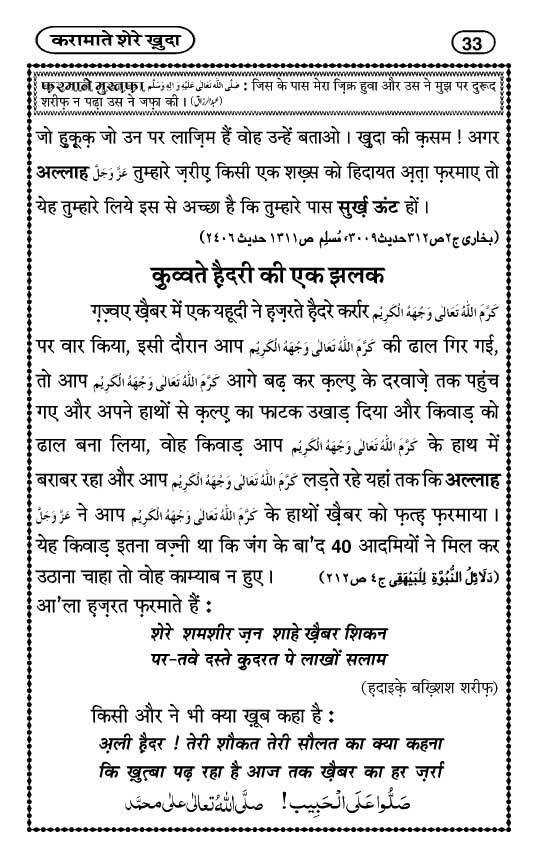 करामाते शेरे ख़ुदा
33
फ़रमाने मुस्तफ़ा صَلَّى اللهُ تَعَالٰى عَلَيْهِ وَاٰلِهٖ وَسَلَّم : जिस के पास मेरा ज़िक्र हुवा और उस ने मुझ पर दुरूद
शरीफ़ न पढ़ा उस ने जफ़ा की । (عبدالرزاق)
जो हुक़ूक़ जो उन पर लाज़िम हैं वोह उन्हें बताओ । ख़ुदा की क़सम ! अगर
अल्लाह عَزَّ وَجَلَّ तुम्हारे ज़रीए किसी एक शख़्स को हिदायत अ़ता फ़रमाए तो
येह तुम्हारे लिये इस से अच्छा है कि तुम्हारे पास सुर्ख़ ऊंट हों ।
(بخاری ج٢ص٣١٢حديث٣٠٠٩، مُسلِم ص١٣١١ حديث ٢٤٠٦)
क़ुव्वते ह़ैदरी की एक झलक
ग़ज़्वए ख़ैबर में एक यहूदी ने ह़ज़रते ह़ैदरे कर्रार كَرَّمَ اللهُ تَعَالٰى وَجْهَهُ الْكَرِيْم
पर वार किया, इसी दौरान आप كَرَّمَ اللهُ تَعَالٰى وَجْهَهُ الْكَرِيْم की ढाल गिर गई,
तो आप كَرَّمَ اللهُ تَعَالٰى وَجْهَهُ الْكَرِيْم आगे बढ़ कर क़ल्ए के दरवाज़े तक पहुंच
गए और अपने हाथों से क़ल्ए का फाटक उखाड़ दिया और किवाड़ को
ढाल बना लिया, वोह किवाड़ आप كَرَّمَ اللهُ تَعَالٰى وَجْهَهُ الْكَرِيْم के हाथ में
बराबर रहा और आप كَرَّمَ اللهُ تَعَالٰى وَجْهَهُ الْكَرِيْم लड़ते रहे यहां तक कि अल्लाह
عَزَّ وَجَلَّ ने आप كَرَّمَ اللهُ تَعَالٰى وَجْهَهُ الْكَرِيْم के हाथों ख़ैबर को फ़त्ह़ फ़रमाया ।
येह किवाड़ इतना वज़्नी था कि जंग के बा'द 40 आदमियों ने मिल कर
उठाना चाहा तो वोह काम्याब न हुए । (دَلَائِلُ النُّبُوَّة لِلْبَيْهَقِى ج٤ ص٢١٢)
आ'ला ह़ज़रत फ़रमाते हैं :
शेरे शमशीर ज़न शाहे ख़ैबर शिकन
पर-तवे दस्ते क़ुदरत पे लाखों सलाम
(ह़दाइक़े बख़्शिश शरीफ़)
किसी और ने भी क्या ख़ूब कहा है :
अ़ली ह़ैदर ! तेरी शौकत तेरी सौलत का क्या कहना
कि ख़ुत़्बा पढ़ रहा है आज तक ख़ैबर का हर ज़र्रा
صَلُّوْا عَلَى الْحَبِيْب! صلَّى اللهُ تعالٰى على محمَّد